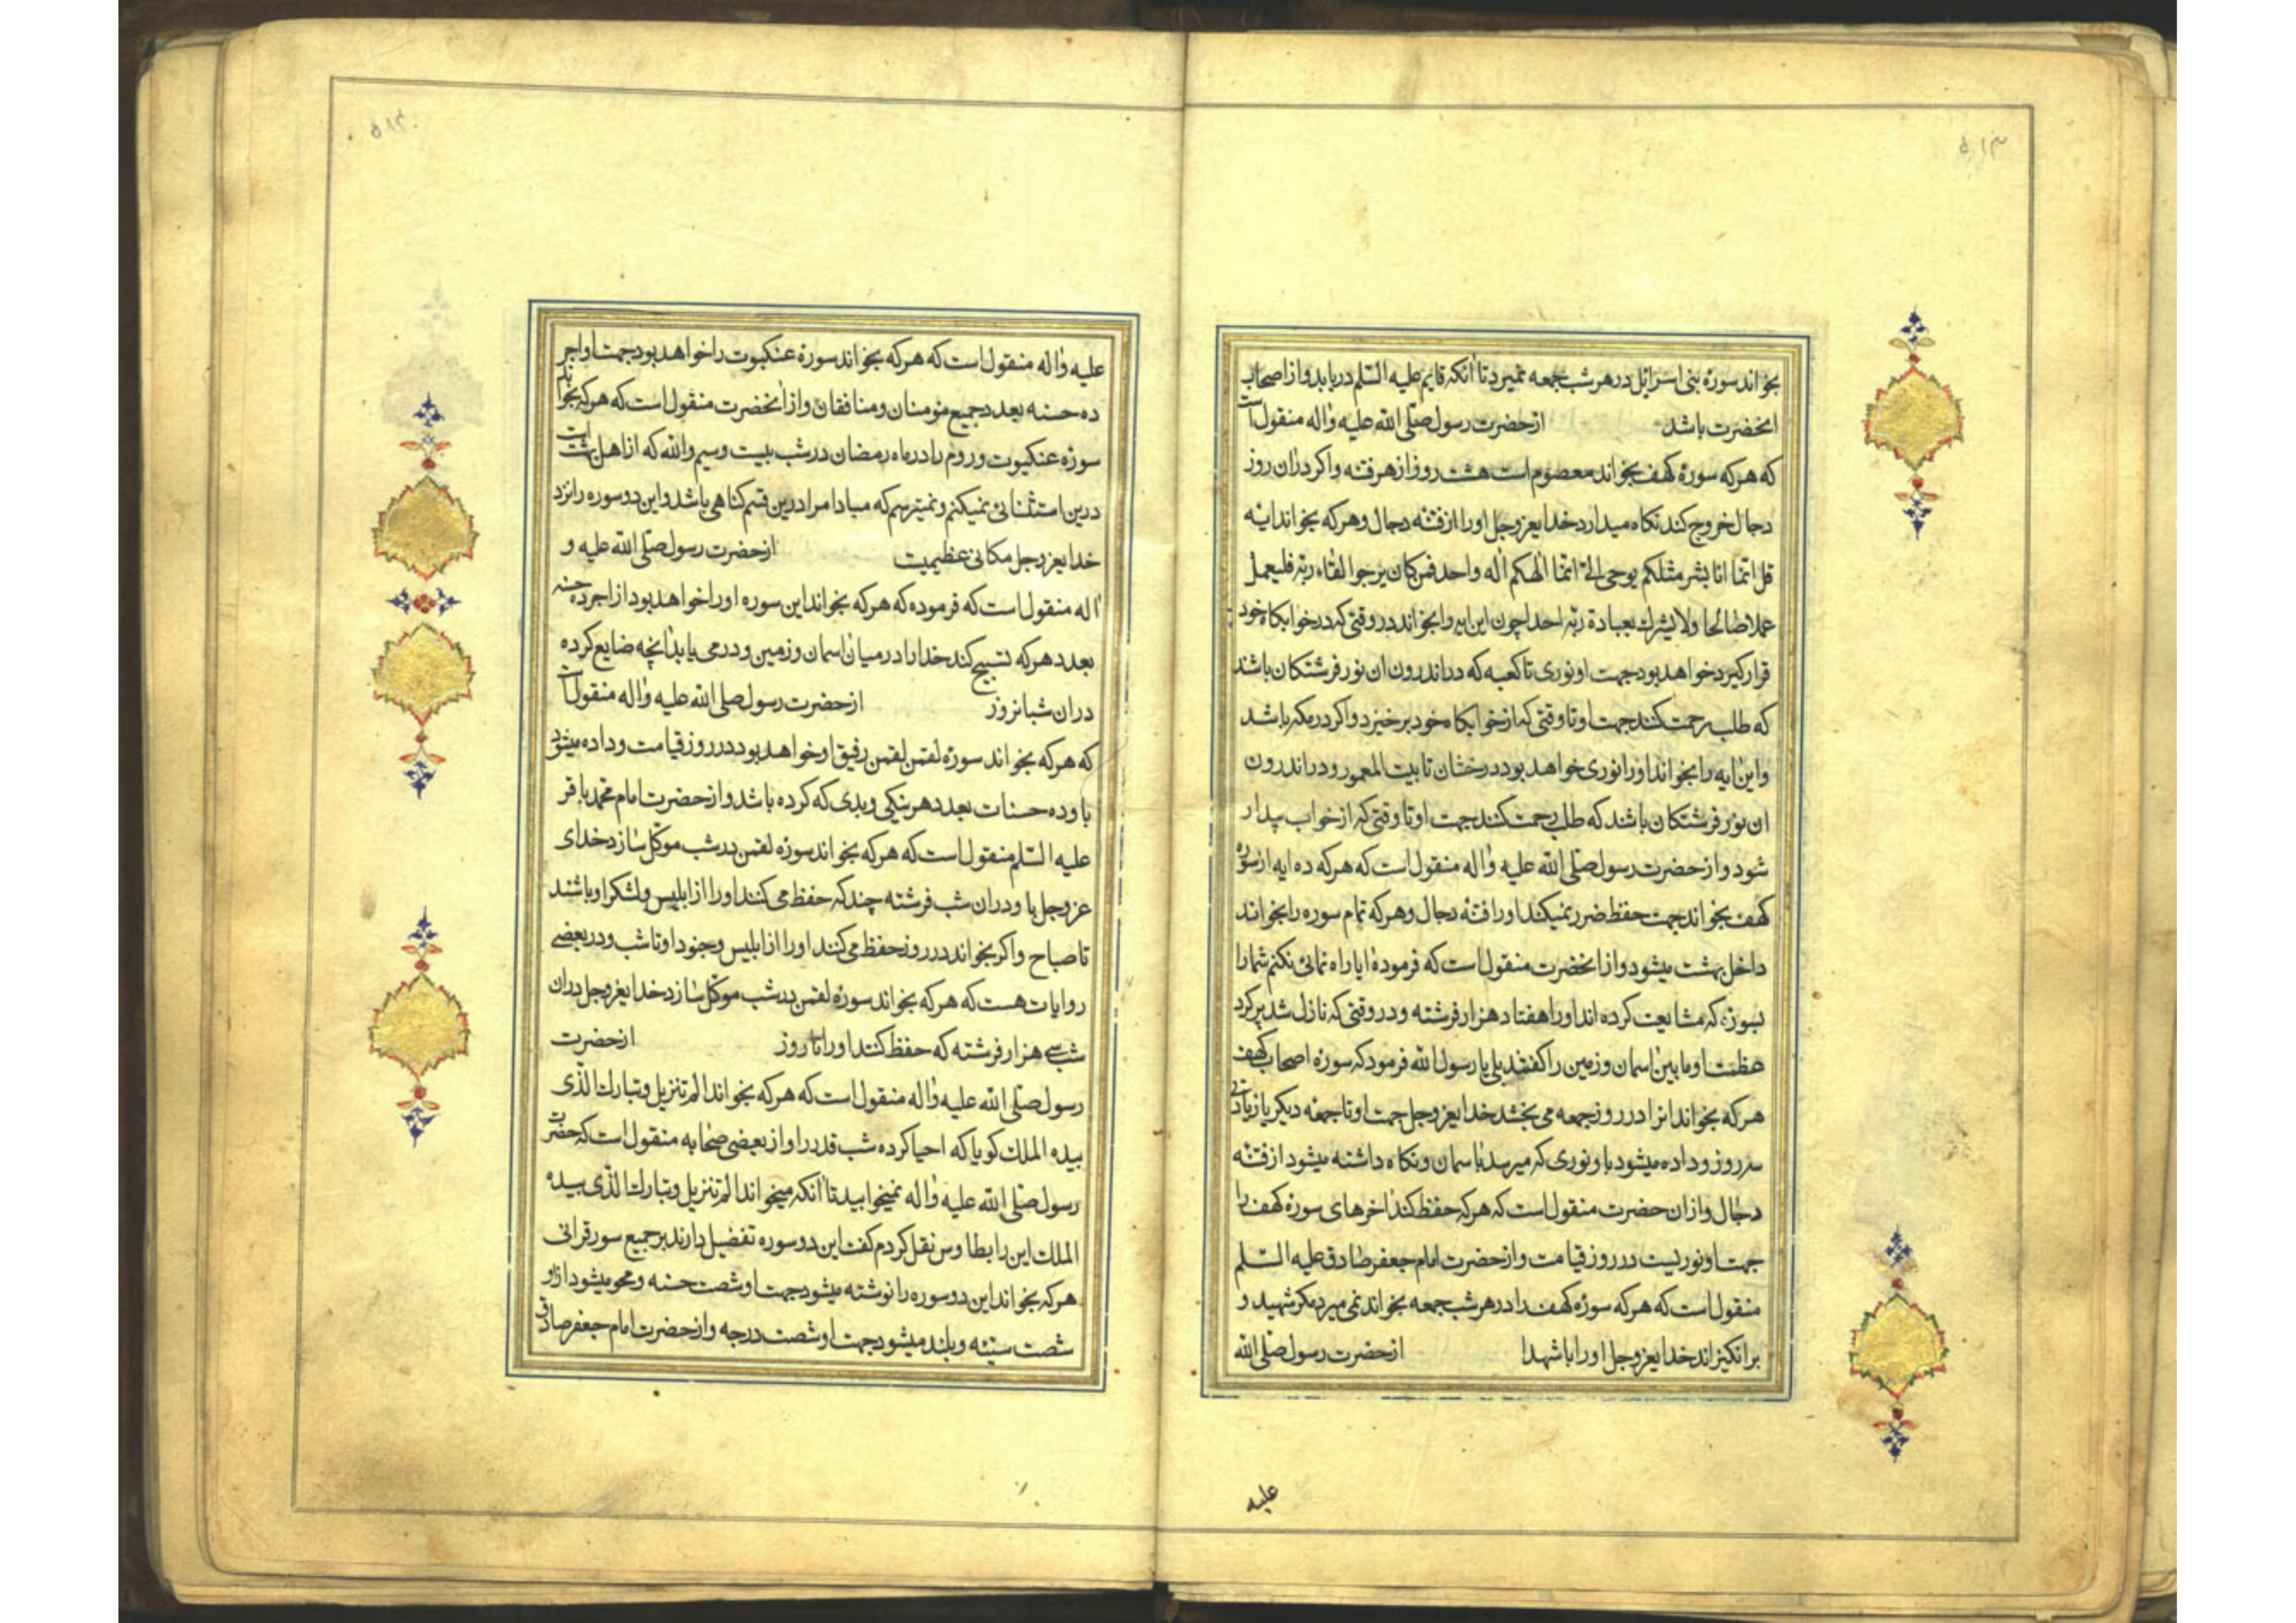 ۵۱۳
بخواند سورهٔ بنی اسرائیل در هر شب جمعه نمیرد تا آنکه قایم علیه السّلم دریابد و از اصحاب
انحضرت باشد از حضرت رسول صلّی الله علیه واله منقول است
که هر که سورهٔ کهف بخواند معصوم است هشت روز از هر فتنه و اکر در ان روز
دجال خروج کند نکاه میدارد خدایعزوجل اورا از فتنه دجال وهر که بخواند ایه
قل انّما انا بشر مثلکم یوحی الیّ انّما الهکم اله واحد فمن کان یرجوا لقاء ربّه فلیعمل
عملا صالحا ولا یشرک بعبادة ربّه احدا چون این ایه را بخواند در وقتی که در خوابکاه خود
قرار کیرد خواهد بود جهت او نوری تا کعبه که در اندرون ان نور فرشتکان باشند
که طلب رحمت کنند جهت او تا وقتی که از خوابکاه خود برخیزد و اکر در مکه باشد
واین ایه را بخواند اورا نوری خواهد بود درخشان تا بیت المعمور و در اندرون
ان نور فرشتکان باشد که طلب رحمت کنند جهت او تا وقتی که از خواب بیدار
شود و از حضرت رسول صلّی الله علیه واله منقول است که هر که ده ایه از سوره
کهف بخواند جهت حفظ ضرر نمیکند اورا فتنه دجال وهر که تمام سوره را بخواند
داخل بهشت میشود و از انحضرت منقول است که فرموده ایا راه نمائی نکنم شمارا
بسورهٔ که مشایعت کرده اند اورا هفتاد هزار فرشته و در وقتی که نازل شد پر کرد
عظمت او مابین اسمان وزمین را کفتند بلی یا رسول الله فرمود که سوره اصحاب کهف
هر که بخواند انرا در روز جمعه می بخشد خدایعزوجل جهت او تا جمعه دیکر با زیادتی
سه روز و داده میشود با و نوری که میرسد با سمان و نکاه داشته میشود از فتنه
دجال و از ان حضرت منقول است که هر که حفظ کند اخرهای سورهٔ کهف را
جهت او نوریست در روز قیامت و از حضرت امام جعفر صادق علیه السّلم
منقول است که هر که سورهٔ کهف را در هر شب جمعه بخواند نمی میرد مکر شهید و
برانکیزاند خدایعزوجل اورا با شهدا از حضرت رسول صلّی الله
علیه
۵۱۴
علیه واله منقول است که هر که بخواند سورهٔ عنکبوت را خواهد بود جهت او اجر
ده حسنه بعدد جمیع مومنان ومنافقان و از انحضرت منقول است که هر که بخواند
سورهٔ عنکبوت و روم را در ماه رمضان در شب بیست وسیم والله که از اهل بهشت است
درین استثنائی نمیکنم و نمیترسم که مبادا مرا درین قسم کناهی باشد و این دو سوره را نزد
خدایعزوجل مکانی عظیمیت از حضرت رسول صلّی الله علیه و
اله منقول است که فرموده که هر که بخواند این سوره اورا خواهد بود از اجر ده حسنه
بعدد هر که تسبیح کند خدا را در میان اسمان وزمین و در می یابد انچه ضایع کرده
در ان شبانروز از حضرت رسول صلی الله علیه واله منقول است
که هر که بخواند سورهٔ لقمن لقمن رفیق او خواهد بود در روز قیامت وداده میشود
با و ده حسنات بعدد هر نیکی وبدی که کرده باشد و از حضرت امام محمّد باقر
علیه السّلم منقول است که هر که بخواند سورهٔ لقمن در شب موکّل سازد خدای
عزوجل با و در ان شب فرشته چند که حفظ می کنند اورا از ابلیس ولشکر او باشند
تا صباح واکر بخواند در روز حفظ می کنند اورا از ابلیس وجنود او تا شب و در بعضی
روایات هست که هر که بخواند سورهٔ لقمن در شب موکّل سازد خدایعزوجل در ان
شب سی هزار فرشته که حفظ کنند اورا تا روز از حضرت
رسول صلّی الله علیه واله منقول است که هر که بخواند الم تنزیل وتبارک الّذی
بیده الملک کویا که احیا کرده شب قدر را و از بعضی صحابه منقول است که حضرت
رسول صلّی الله علیه واله نمیخوابید تا آنکه میخواند الم تنزیل وتبارک الّذی بیده
الملک این را بطاوس نقل کردم کفت این دو سوره تفضیل دارند بر جمیع سور قرانی
هر که بخواند این دو سوره را نوشته میشود جهت او شصت حسنه ومحو میشود از او
شصت سیّئه وبلند میشود جهت او شصت درجه و از حضرت امام جعفر صادق